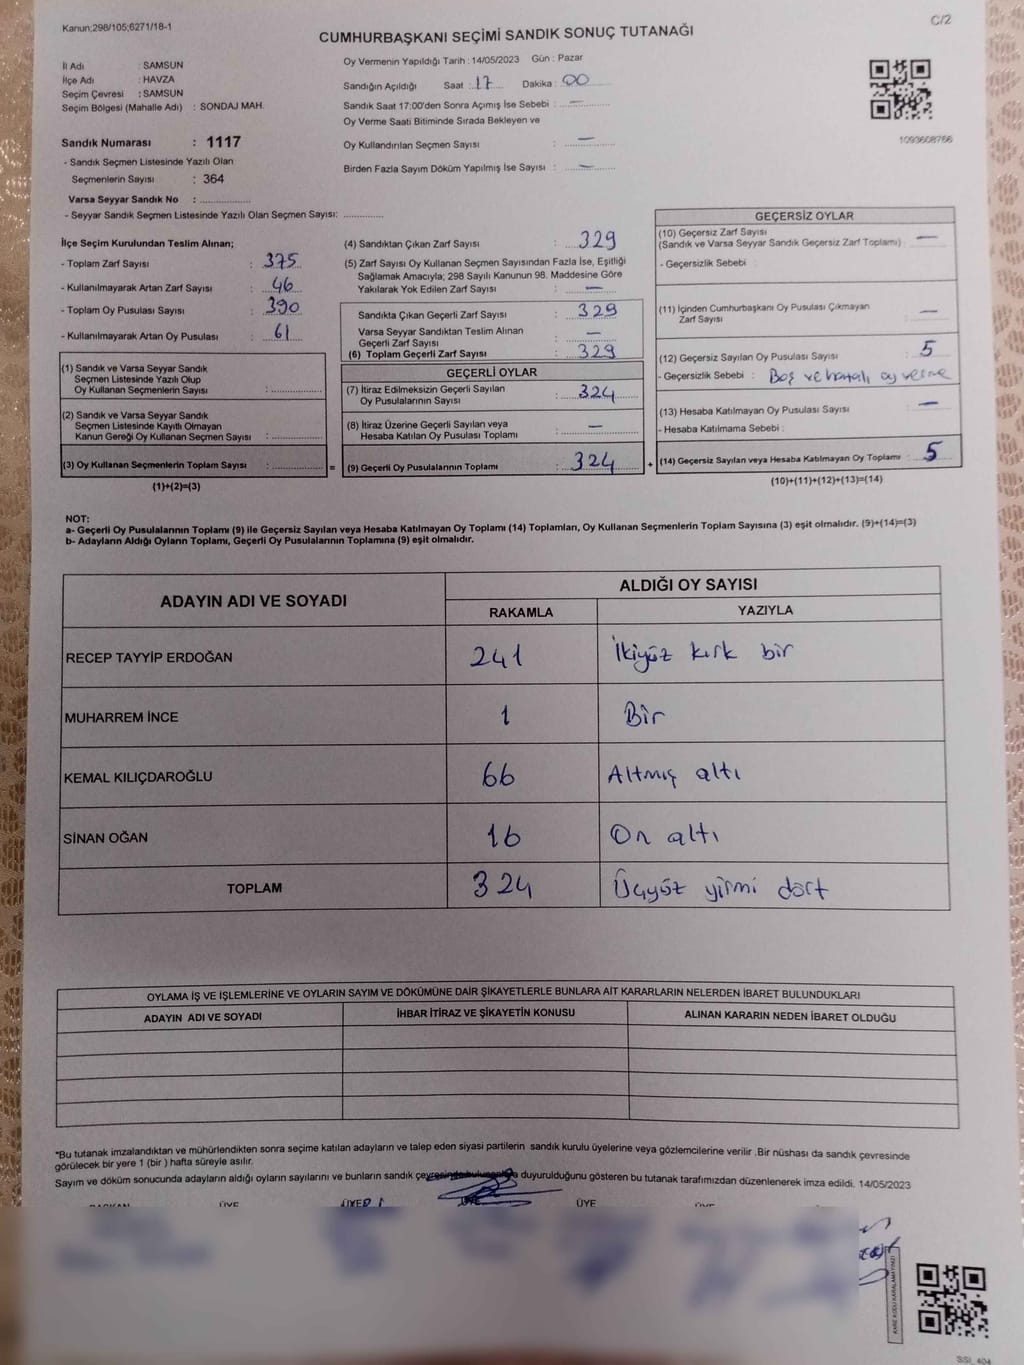 Kanun;298/105;6271/18-1
C/2
CUMHURBAŞKANI SEÇİMİ SANDIK SONUÇ TUTANAĞI
İl Adı : SAMSUN
İlçe Adı : HAVZA
Seçim Çevresi : SAMSUN
Seçim Bölgesi (Mahalle Adı) : SONDAJ MAH.
Sandık Numarası : 1117
- Sandık Seçmen Listesinde Yazılı Olan
Seçmenlerin Sayısı : 364
Varsa Seyyar Sandık No : ..............
- Seyyar Sandık Seçmen Listesinde Yazılı Olan Seçmen Sayısı: ............
Oy Vermenin Yapıldığı Tarih : 14/05/2023 Gün : Pazar
Sandığın Açıldığı Saat : 17 Dakika : 00
Sandık Saat 17:00'den Sonra Açımış İse Sebebi : —
Oy Verme Saati Bitiminde Sırada Bekleyen ve
Oy Kullandırılan Seçmen Sayısı : —
Birden Fazla Sayım Döküm Yapılmış İse Sayısı : —
1093608766
İlçe Seçim Kurulundan Teslim Alınan;
- Toplam Zarf Sayısı : 375
- Kullanılmayarak Artan Zarf Sayısı : 46
- Toplam Oy Pusulası Sayısı : 390
- Kullanılmayarak Artan Oy Pusulası : 61
(1) Sandık ve Varsa Seyyar Sandık
Seçmen Listesinde Yazılı Olup
Oy Kullanan Seçmenlerin Sayısı : ..............
(2) Sandık ve Varsa Seyyar Sandık
Seçmen Listesinde Kayıtlı Olmayan
Kanun Gereği Oy Kullanan Seçmen Sayısı : ..............
(3) Oy Kullanan Seçmenlerin Toplam Sayısı : .............. =
(1)+(2)=(3)
(4) Sandıktan Çıkan Zarf Sayısı : 329
(5) Zarf Sayısı Oy Kullanan Seçmen Sayısından Fazla İse, Eşitliği
Sağlamak Amacıyla; 298 Sayılı Kanunun 98. Maddesine Göre
Yakılarak Yok Edilen Zarf Sayısı : —
Sandıkta Çıkan Geçerli Zarf Sayısı : 329
Varsa Seyyar Sandıktan Teslim Alınan
Geçerli Zarf Sayısı : —
(6) Toplam Geçerli Zarf Sayısı : 329
GEÇERLİ OYLAR
(7) İtiraz Edilmeksizin Geçerli Sayılan
Oy Pusulalarının Sayısı : 324
(8) İtiraz Üzerine Geçerli Sayılan veya
Hesaba Katılan Oy Pusulası Toplamı : —
(9) Geçerli Oy Pusulalarının Toplamı : 324 +
GEÇERSİZ OYLAR
(10) Geçersiz Zarf Sayısı
(Sandık ve Varsa Seyyar Sandık Geçersiz Zarf Toplamı) : —
- Geçersizlik Sebebi :
(11) İçinden Cumhurbaşkanı Oy Pusulası Çıkmayan
Zarf Sayısı : —
(12) Geçersiz Sayılan Oy Pusulası Sayısı : 5
- Geçersizlik Sebebi : Boş ve hatalı oy verme
(13) Hesaba Katılmayan Oy Pusulası Sayısı : —
- Hesaba Katılmama Sebebi :
(14) Geçersiz Sayılan veya Hesaba Katılmayan Oy Toplamı : 5
(10)+(11)+(12)+(13)=(14)
NOT:
a- Geçerli Oy Pusulalarının Toplamı (9) ile Geçersiz Sayılan veya Hesaba Katılmayan Oy Toplamı (14) Toplamları, Oy Kullanan Seçmenlerin Toplam Sayısına (3) eşit olmalıdır. (9)+(14)=(3)
b- Adayların Aldığı Oyların Toplamı, Geçerli Oy Pusulalarının Toplamına (9) eşit olmalıdır.
ADAYIN ADI VE SOYADI
ALDIĞI OY SAYISI
RAKAMLA YAZIYLA
RECEP TAYYİP ERDOĞAN 241 İkiyüz kırk bir
MUHARREM İNCE 1 Bir
KEMAL KILIÇDAROĞLU 66 Altmış altı
SİNAN OĞAN 16 On altı
TOPLAM 324 Üçyüz yirmi dört
OYLAMA İŞ VE İŞLEMLERİNE VE OYLARIN SAYIM VE DÖKÜMÜNE DAİR ŞİKAYETLERLE BUNLARA AİT KARARLARIN NELERDEN İBARET BULUNDUKLARI
ADAYIN ADI VE SOYADI İHBAR İTİRAZ VE ŞİKAYETİN KONUSU ALINAN KARARIN NEDEN İBARET OLDUĞU
*Bu tutanak imzalandıktan ve mühürlendikten sonra seçime katılan adayların ve talep eden siyasi partilerin sandık kurulu üyelerine veya gözlemcilerine verilir .Bir nüshası da sandık çevresinde
görülecek bir yere 1 (bir ) hafta süreyle asılır.
Sayım ve döküm sonucunda adayların aldığı oyların sayılarını ve bunların sandık çevresinde duyurulduğunu gösteren bu tutanak tarafımızdan düzenlenerek imza edildi. 14/05/2023
BAŞKAN ÜYE ÜYE ÜYE ÜYE ÜYE
KARE KODU KARALAMAYINIZ!
SSI_404